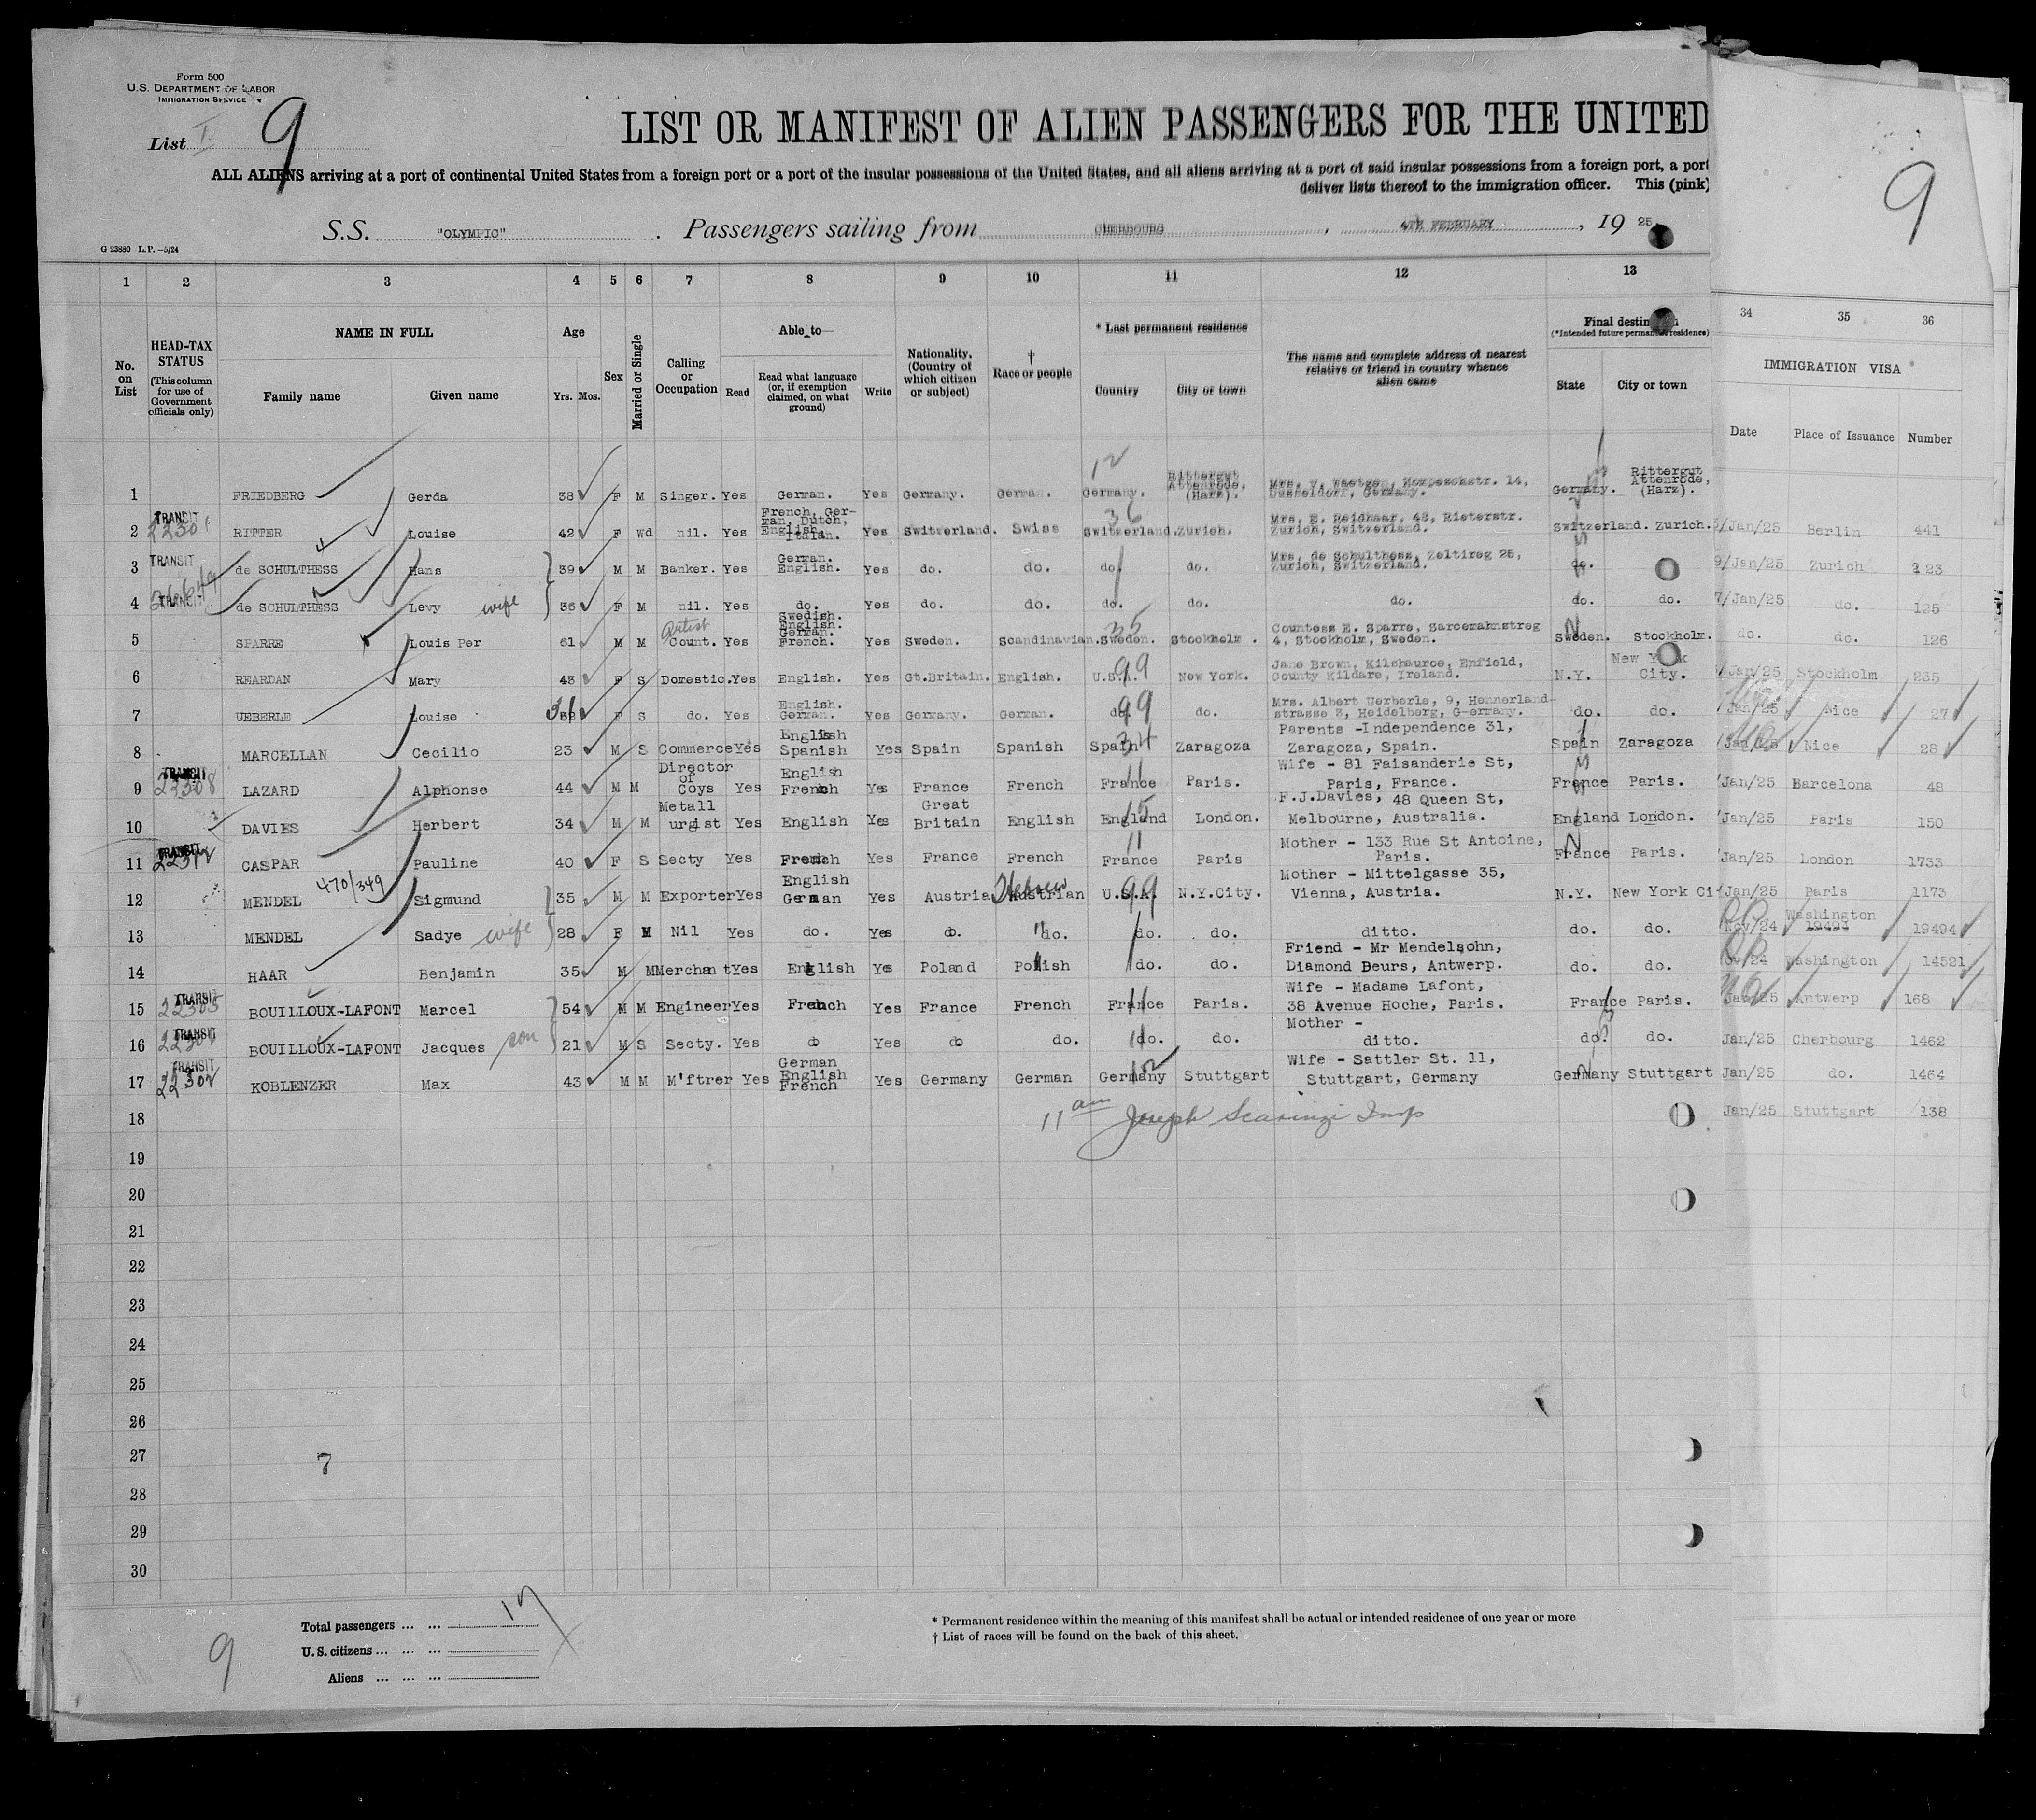 Form 500
U.S. DEPARTMENT OF LABOR
IMMIGRATION SERVICE
List I 9
LIST OR MANIFEST OF ALIEN PASSENGERS FOR THE UNITED
ALL ALIENS arriving at a port of continental United States from a foreign port or a port of the insular possessions of the United States, and all aliens arriving at a port of said insular possessions from a foreign port, a port
deliver lists thereof to the immigration officer. This (pink)
9
G 23880 L.P.—5/24
S.S. "OLYMPIC" . Passengers sailing from CHERBOURG, 4TH FEBRUARY, 19 25.
1 2 3 4 5 6 7 8 9 10 11 12 13 34 35 36
No. on List
HEAD-TAX STATUS
(This column for use of Government officials only)
NAME IN FULL
Family name Given name
Age
Yrs. Mos.
Sex
Married or Single
Calling or Occupation
Able to—
Read
Read what language (or, if exemption claimed, on what ground)
Write
Nationality. (Country of which citizen or subject)
† Race or people
* Last permanent residence
Country City or town
The name and complete address of nearest relative or friend in country whence alien came
Final destination
(*Intended future permanent residence)
State City or town
IMMIGRATION VISA
Date Place of Issuance Number
1 FRIEDBERG Gerda 38 F M Singer. Yes German. Yes Germany. German. Germany. 12 Rittergut Attenrode, (Harz). Dusseldorf, Germany. Germany. Rittergut Attenrode, (Harz).
2 TRANSIT RITTER Louise 42 F Wd nil. Yes French, German, Dutch, English, Italan. Yes Switzerland. Swiss Switzerland. 36 Zurich. Mrs. E. Reidhaar, 48, Rieterstr. Zurich, Switzerland. Switzerland. Zurich. /Jan/25 Berlin 441
3 TRANSIT de SCHULTHESS Hans 39 M M Banker. Yes German. English. Yes do. do. do. do. Mrs. de Schulthess, Zeltireg 25, Zurich, Switzerland. do. 9/Jan/25 Zurich 223
4 TRANSIT de SCHULTHESS Levy wife 36 F M nil. Yes do. Yes do. do. do. do. do. do. do. 7/Jan/25 do. 125
5 SPARRE Louis Per 61 M M Artist Count. Yes Swedish. English. German. French. Yes Sweden. Scandinavian. Sweden. 35 Stockholm. Countess E. Sparre, Sarcemahnstreg 4, Stockholm, Sweden. Sweden. Stockholm. do. do. 126
6 REARDAN Mary 43 F S Domestic. Yes English. Yes Gt.Britain. English. U.S.A. 99 New York. Jane Brown, Kilshauroe, Enfield, County Kildare, Ireland. N.Y. New York City. /Jan/25 Stockholm 235
7 UEBERLE Louise 31 F S do. Yes English. German. Yes Germany. German. do. 99 do. Mrs. Albert Uerberle, 9, Hennerland-strasse 3, Heidelberg, G-ermany. do. do. /Jan/25 Nice 27
8 MARCELLAN Cecilio 23 M S Commerce Yes English Spanish Yes Spain Spanish Spain 34 Zaragoza Parents -Independence 31, Zaragoza, Spain. Spain Zaragoza /Jan/25 Nice 28
9 TRANSIT 22308 LAZARD Alphonse 44 M M Director of Coys Yes English French Yes France French France 11 Paris. Wife - 81 Faisanderie St, Paris, France. France Paris. /Jan/25 Barcelona 48
10 DAVIES Herbert 34 M M Metall urgist Yes English Yes Great Britain English England 15 London. F.J.Davies, 48 Queen St, Melbourne, Australia. England London. /Jan/25 Paris 150
11 TRANSIT CASPAR Pauline 40 F S Secty Yes French Yes France French France 11 Paris Mother - 133 Rue St Antoine, Paris. France Paris. /Jan/25 London 1733
12 MENDEL 470/349 Sigmund 35 M M Exporter Yes English German Yes Austria Hebrew Austrian U.S.A. 99 N.Y.City. Mother - Mittelgasse 35, Vienna, Austria. N.Y. New York Ci /Jan/25 Paris 1173
13 MENDEL Sadye wife 28 F M Nil Yes do. Yes do. do. do. do. ditto. do. do. Nov/24 Washington 19494
14 HAAR Benjamin 35 M M Merchant Yes English Yes Poland Polish do. do. Friend - Mr Mendelsohn, Diamond Beurs, Antwerp. do. do. /24 Washington 14521
15 TRANSIT 22305 BOUILLOUX-LAFONT Marcel 54 M M Engineer Yes French Yes France French France 11 Paris. Wife - Madame Lafont, 38 Avenue Hoche, Paris. France Paris. Jan/25 Antwerp 168
16 TRANSIT BOUILLOUX-LAFONT Jacques son 21 M S Secty. Yes do Yes do do. do. do. Mother - ditto. do. do. Jan/25 Cherbourg 1462
17 TRANSIT 22302 KOBLENZER Max 43 M M M'ftrer Yes German English French Yes Germany German Germany 12 Stuttgart Wife - Sattler St. 11, Stuttgart, Germany Germany Stuttgart Jan/25 do. 1464
18 11 am Joseph Scaringi Insp Jan/25 Stuttgart 138
19
20
21
22
23
24
25
26
27 7
28
29
30
Total passengers ... ... 17
U.S. citizens ... ... ...
Aliens ... ... ...
9
* Permanent residence within the meaning of this manifest shall be actual or intended residence of one year or more
† List of races will be found on the back of this sheet.